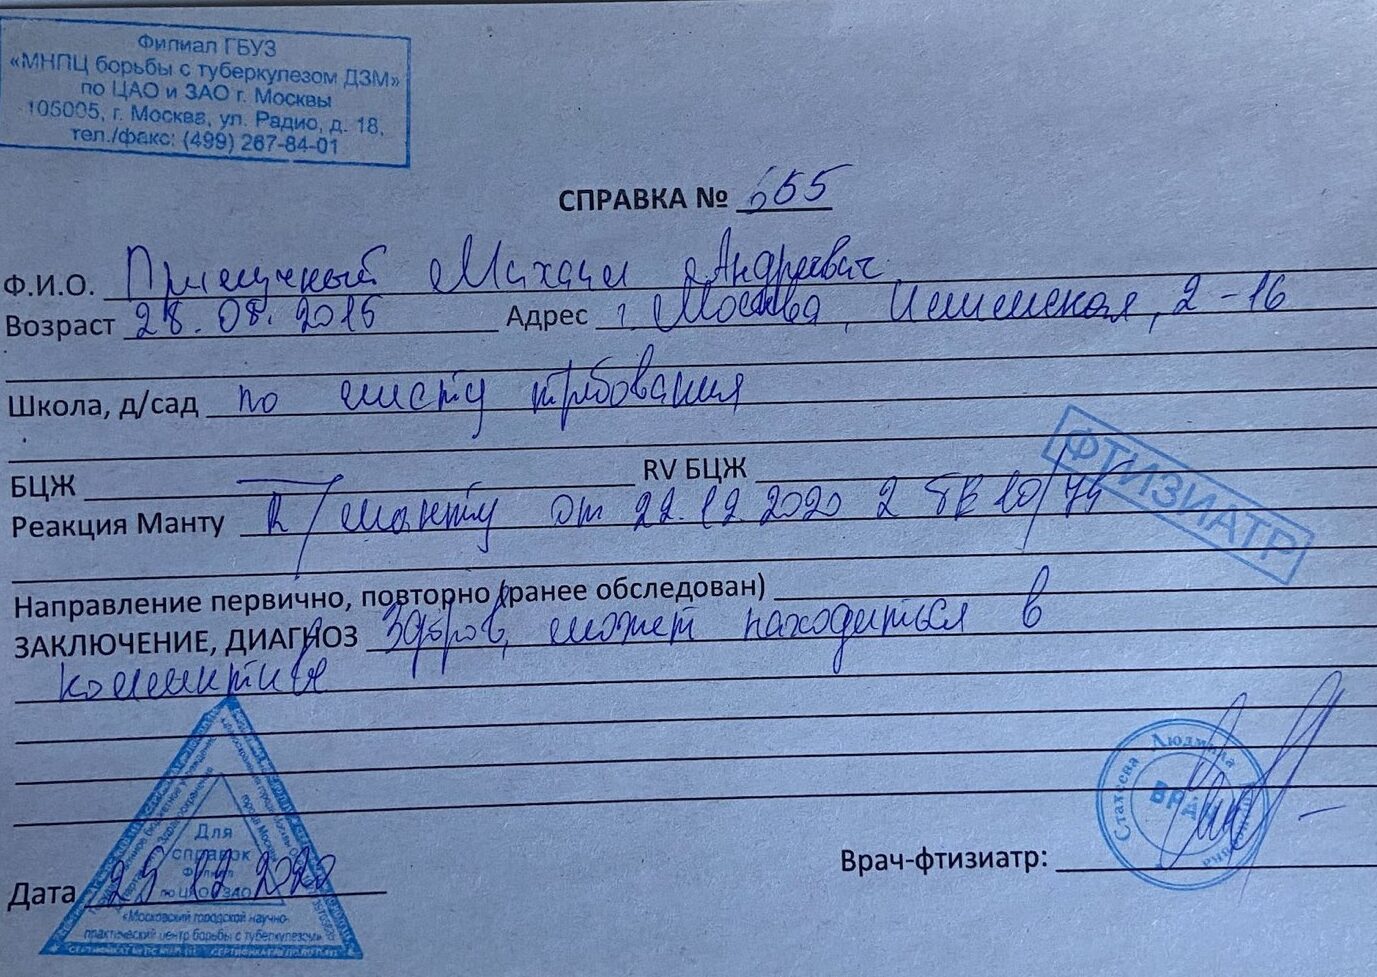 Филиал ГБУЗ
«МНПЦ борьбы с туберкулезом ДЗМ»
по ЦАО и ЗАО г. Москвы
105005, г. Москва, ул. Радио, д. 18,
тел./факс: (499) 267-84-01
СПРАВКА № 655
Ф.И.О. Михаил Андреевич
Возраст 28.08.2015 Адрес г. Москва, 2-16
Школа, д/сад по месту требования
БЦЖ — RV БЦЖ
ФТИЗИАТР
Реакция Манту R/манту от 22.12.2020 2 ТЕ
Направление первично, повторно (ранее обследован)
ЗАКЛЮЧЕНИЕ, ДИАГНОЗ Здоров, может находиться в
коллективе
Для
справок
Филиал
по ЦАО и ЗАО
«Московский городской научно-
практический центр борьбы с туберкулезом»
Стахеева Людмила
ВРАЧ
Врач-фтизиатр:
Дата 25 12 2020